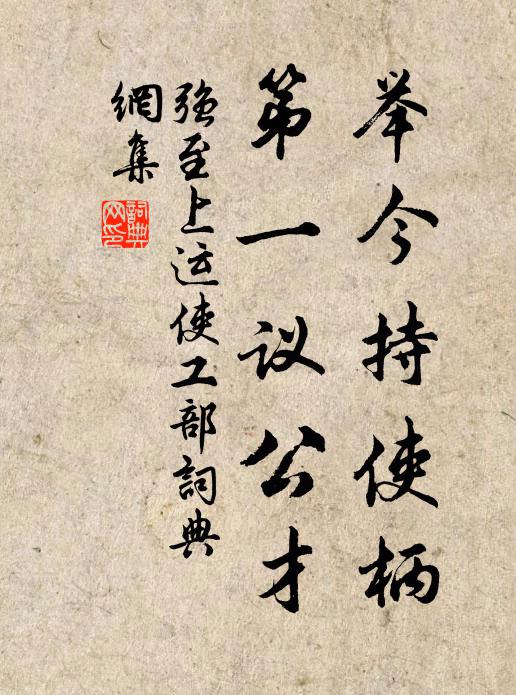 举今持使柄
第一议公才
强至上运使工部詞典
網集
詞典
网印